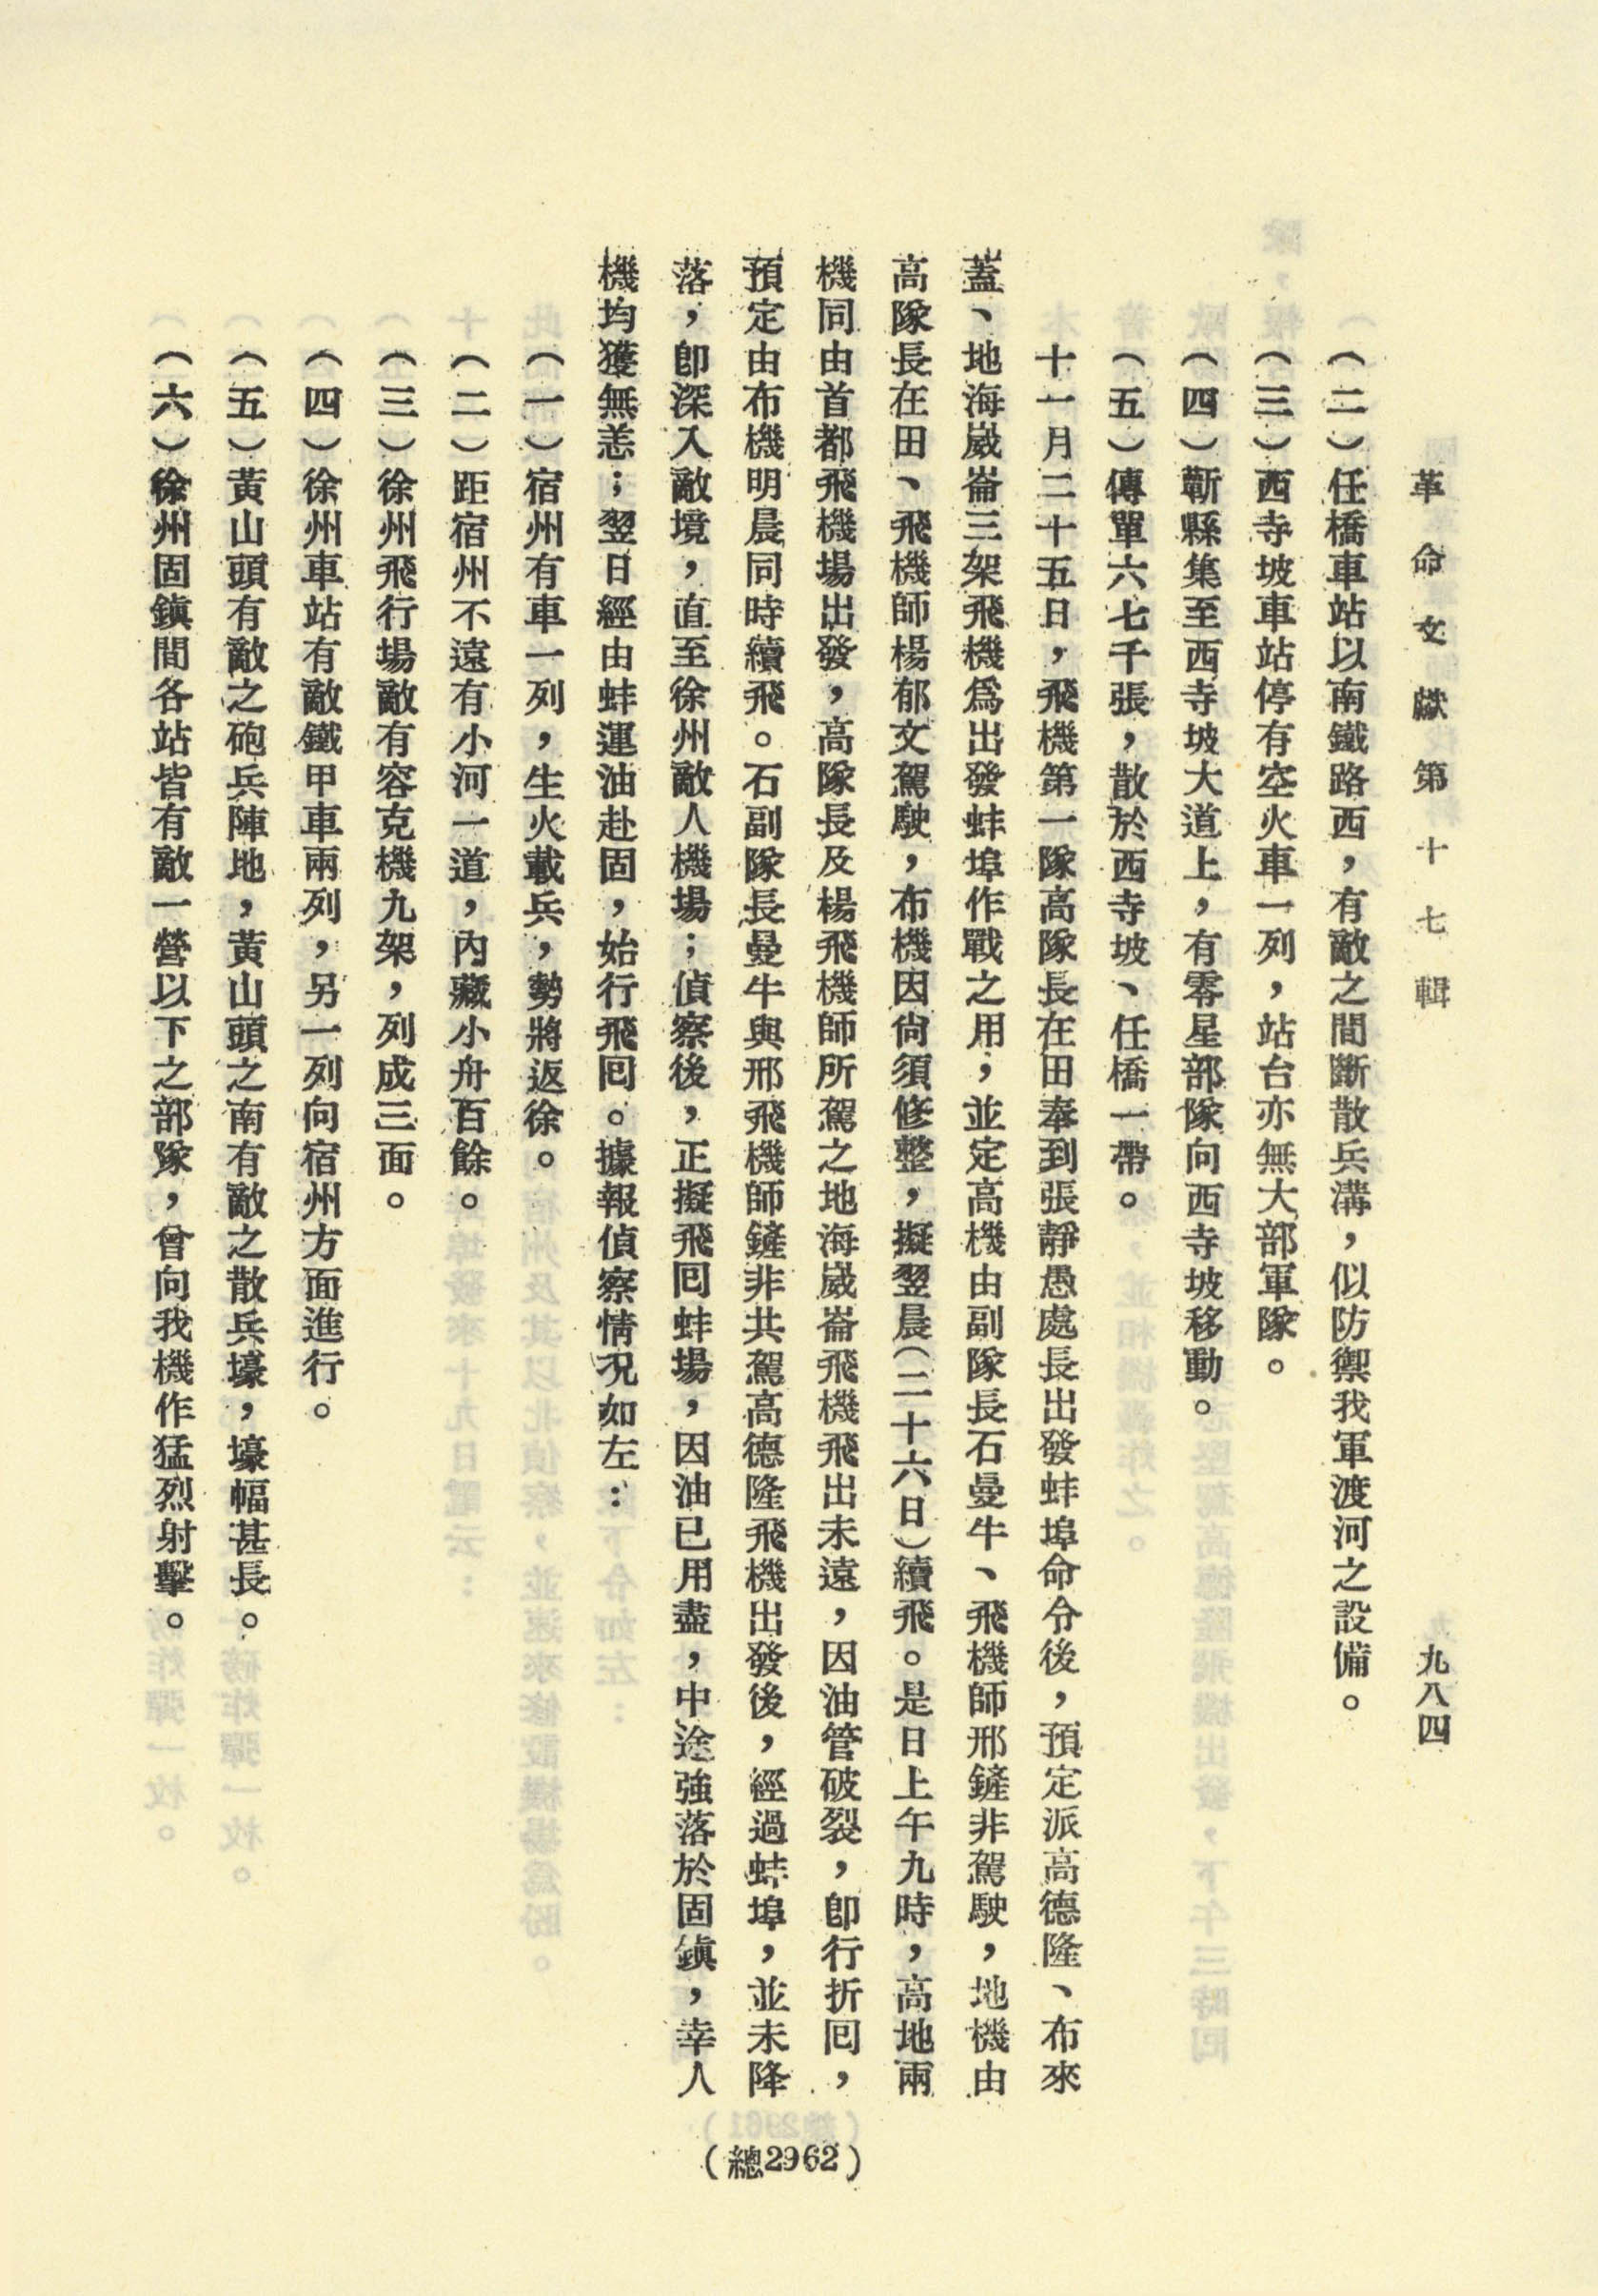 革命文獻第十七輯　九八四
（二）任橋車站以南鐵路西，有敵之間斷散兵溝，似防禦我軍渡河之設備。
（三）西寺坡車站停有空火車一列，站台亦無大部軍隊。
（四）蘄縣集至西寺坡大道上，有零星部隊向西寺坡移動。
（五）傳單六七千張，散於西寺坡、任橋一帶。
十一月二十五日，飛機第一隊高隊長在田奉到張靜愚處長出發蚌埠命令後，預定派高德隆、布來
蓋、地海崴崙三架飛機爲出發蚌埠作戰之用，並定高機由副隊長石曼牛、飛機師邢鏟非駕駛，地機由
高隊長在田、飛機師楊郁文駕駛，布機因尙須修整，擬翌晨（二十六日）續飛。是日上午九時，高地兩
機同由首都飛機場出發，高隊長及楊飛機師所駕之地海崴崙飛機飛出未遠，因油管破裂，卽行折囘，
預定由布機明晨同時續飛。石副隊長曼牛與邢飛機師鏟非共駕高德隆飛機出發後，經過蚌埠，並未降
落，卽深入敵境，直至徐州敵人機場；偵察後，正擬飛囘蚌場，因油已用盡，中途強落於固鎮，幸人
機均獲無恙；翌日經由蚌運油赴固，始行飛囘。據報偵察情况如左：
（一）宿州有車一列，生火載兵，勢將返徐。
（二）距宿州不遠有小河一道，內藏小舟百餘。
（三）徐州飛行場敵有容克機九架，列成三面。
（四）徐州車站有敵鐵甲車兩列，另一列向宿州方面進行。
（五）黃山頭有敵之砲兵陣地，黃山頭之南有敵之散兵壕，壕幅甚長。
（六）徐州固鎮間各站皆有敵一營以下之部隊，曾向我機作猛烈射擊。
（總2962）